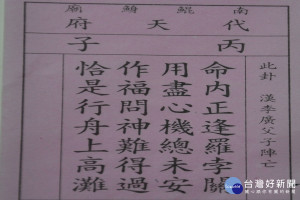 南鯤鯓廟
代天府
丙子
此卦 漢李廣父子陣亡
命內正逢羅孛關
用盡心機總未安
作福問神難得過
恰是行舟上高灘
台灣好新聞